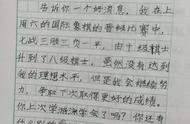 告诉你一个好消息，我在上
周六的国际象棋的晋级比赛中，
七战三胜三负一平，由十级棋士
升到了八级棋士，虽然没有达到
我的理想水平，但是我会继续努
力，争取下次取得更好的成绩。
你上次学游泳学会了吗？你还有